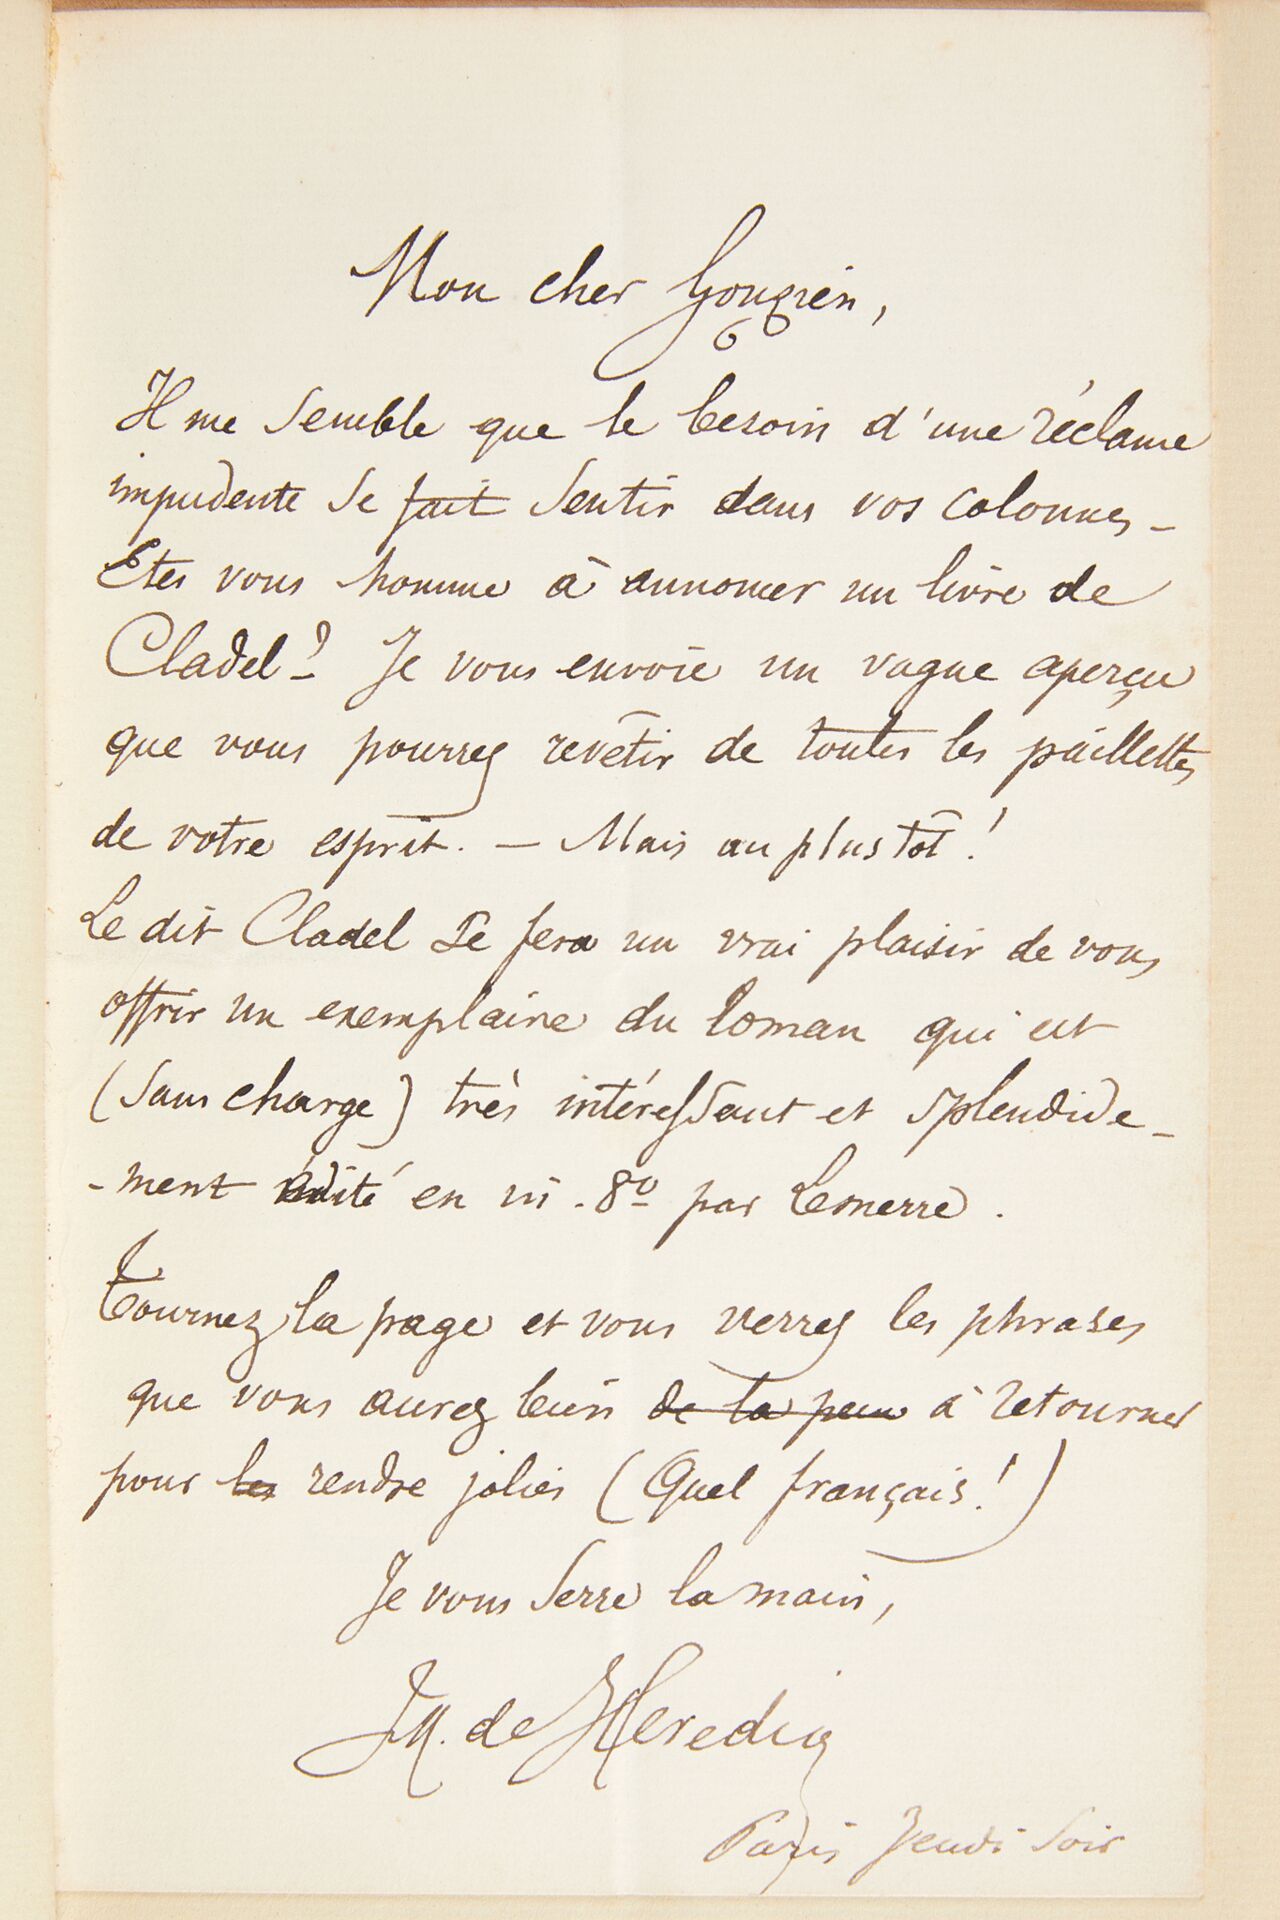 Mon cher Gouzien,
Il me semble que le besoin d'une réclame
impudente se fait sentir dans vos colonnes –
Etes vous homme à annoncer un livre de
Cladel? – Je vous envoie un vague aperçu
que vous pourrez revêtir de toutes les paillettes
de votre esprit. – Mais au plus tôt!
Le dit Cladel se fera un vrai plaisir de vous
offrir un exemplaire du roman qui est
(sans charge) très intéressant et splendide-
-ment édité en in-8º par Lemerre.
Tournez la page et vous verrez les phrases
que vous aurez bien de la peine à retourner
pour les rendre jolies (Quel français!)
Je vous serre la main,
JM. de Heredia
Paris Jeudi soir